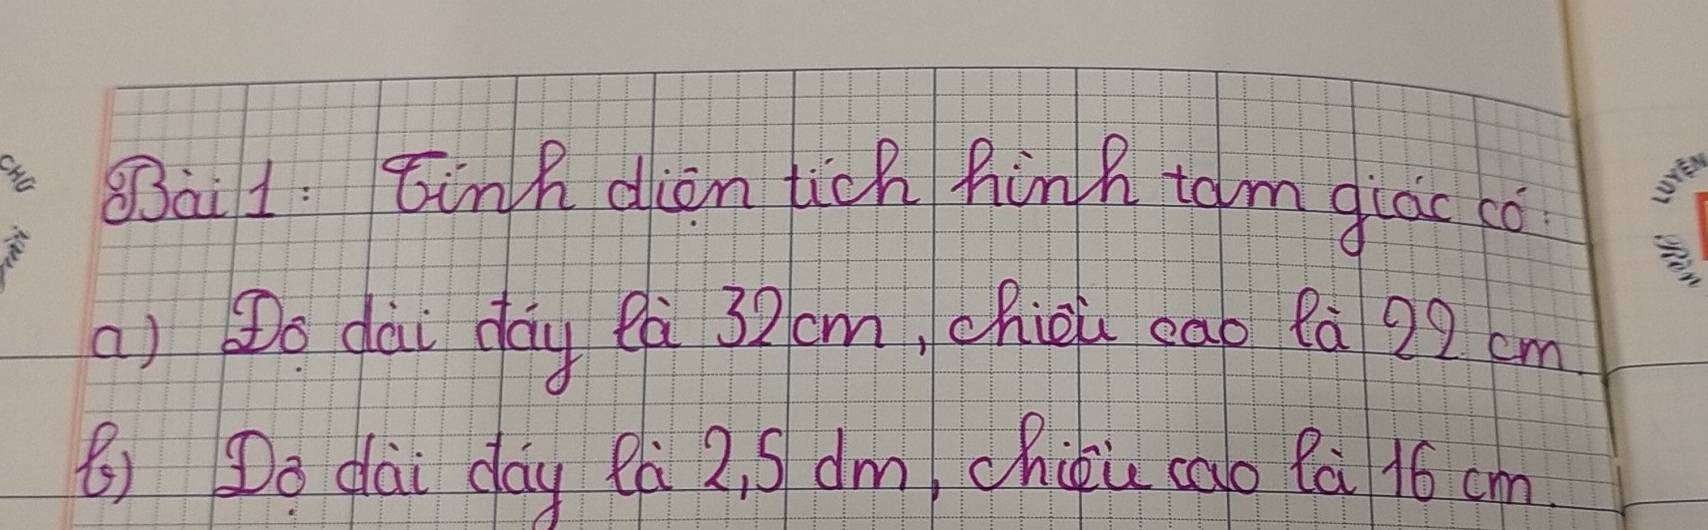 Bài 1: Tính diện tích hình tam giác có:
a) Độ dài đáy là 32 cm, chiều cao là 22 cm.
b) Độ dài đáy là 2,5 dm, chiều cao là 16 cm.
CHỮ
LUYỆN